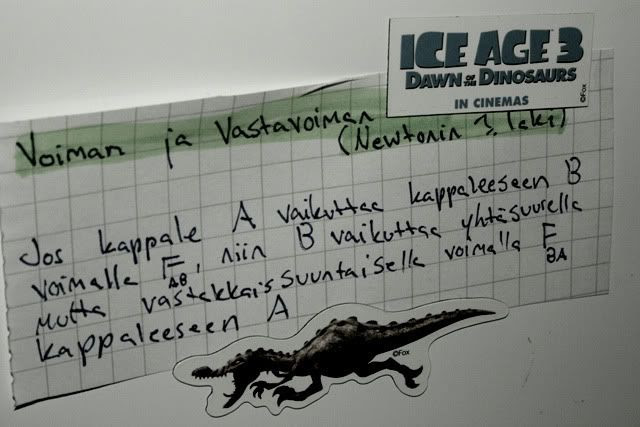 ICE AGE 3
DAWN OF THE DINOSAURS
IN CINEMAS
©Fox
Voiman ja Vastavoiman
(Newtonin 3. laki)
Jos kappale A vaikuttaa kappaleeseen B
voimalla F AB, niin B vaikuttaa yhtäsuurella
mutta vastakkaissuuntaisella voimalla F BA
kappaleeseen A
©Fox